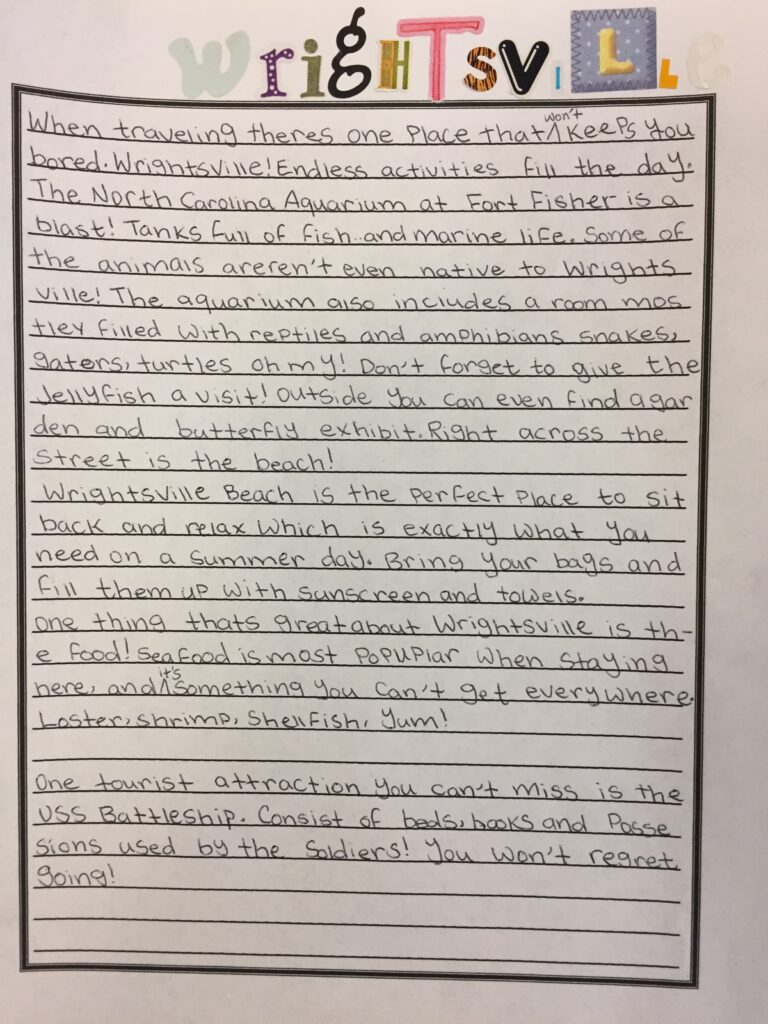 WrigHTsviLLe
When traveling theres one place that ^ won't keeps you
bored. Wrightsville! Endless activities fill the day.
The North Carolina Aquarium at Fort Fisher is a
blast! Tanks full of fish and marine life. Some of
the animals areren't even native to Wrights
ville! The aquarium also includes a room mos
tley filled with reptiles and amphibians snakes,
gators, turtles oh my! Don't forget to give the
Jellyfish a visit! Outside you can even find a gar
den and butterfly exhibit. Right across the
street is the beach!
Wrightsville Beach is the perfect place to sit
back and relax which is exactly what you
need on a summer day. Bring your bags and
fill them up with sunscreen and towels.
One thing thats great about Wrightsville is th-
e food! Seafood is most popuplar when staying
here, and ^ it's something you can't get everywhere.
Loster, shrimp, shellfish, Yum!
One tourist attraction you can't miss is the
USS Battleship. Consist of beds, books and posse
sions used by the soldiers! You won't regret
going!